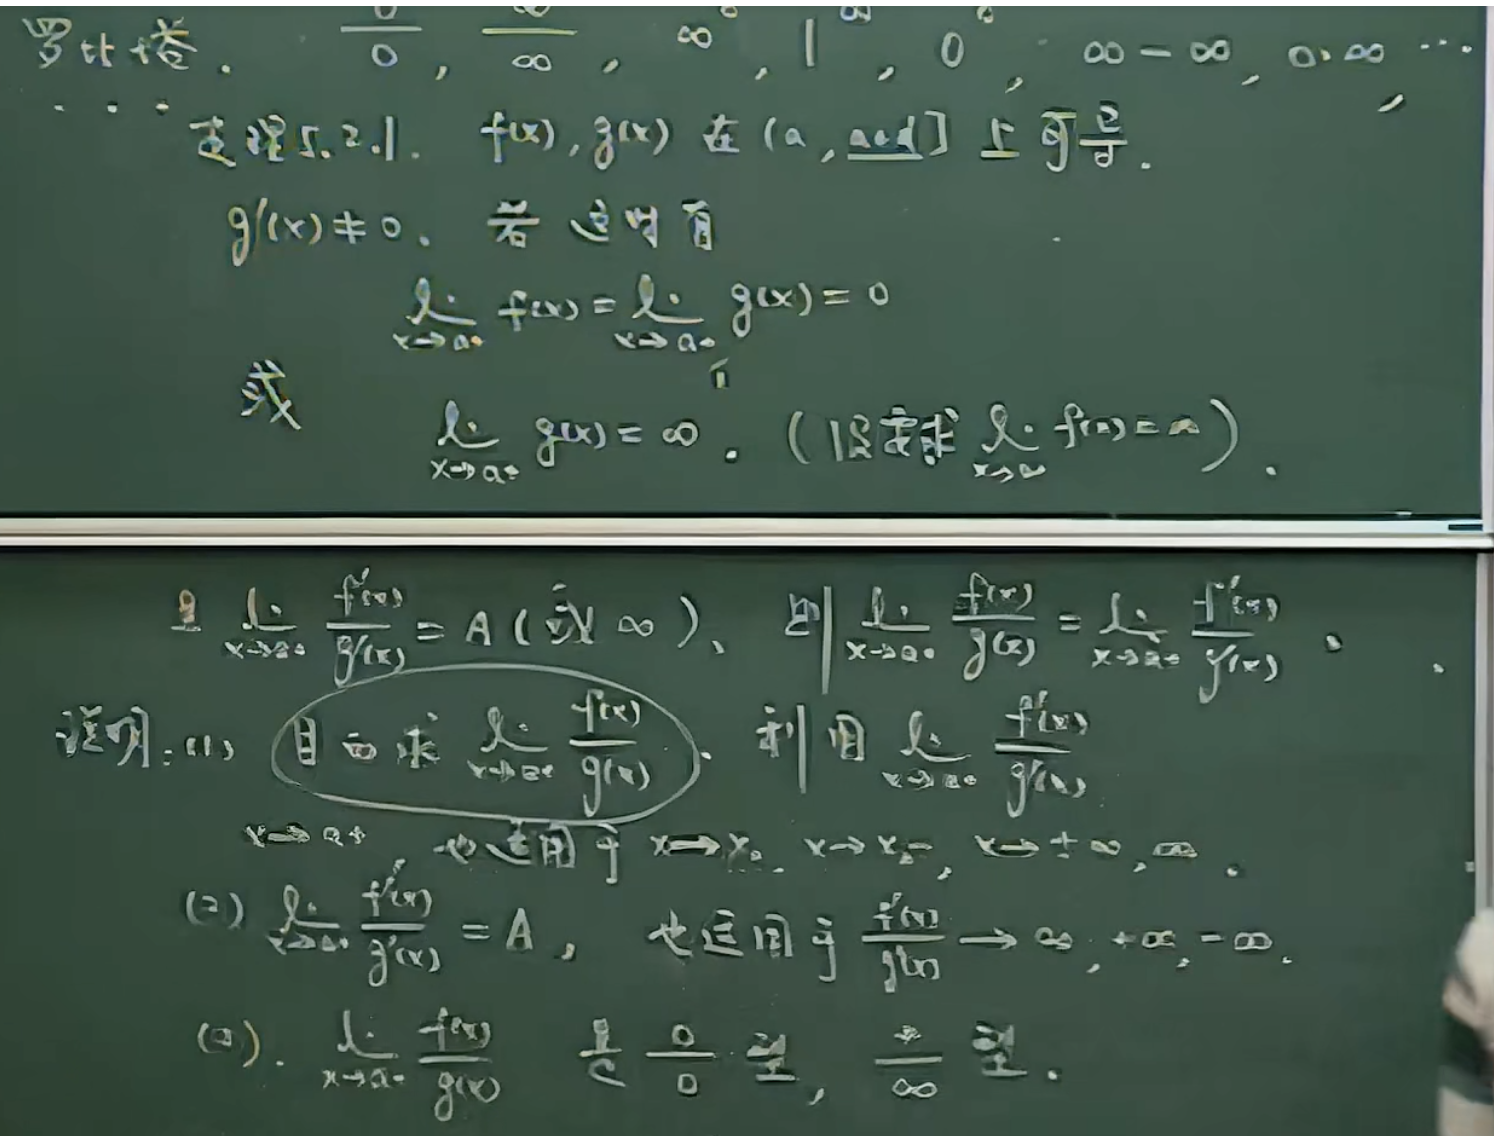 罗比塔. 0/0, ∞/∞, ∞⁰, 1^∞, 0⁰, ∞-∞, 0·∞ ...
定理5.2.1. f(x), g(x) 在 (a, a+d] 上可导.
g'(x)≠0. 若 这时有
lim_{x→a+} f(x) = lim_{x→a+} g(x) = 0
或
lim_{x→a+} g(x) = ∞. (没要求 lim f(x)=∞).
且 lim_{x→a+} f'(x)/g'(x) = A (或 ∞), 则 lim_{x→a+} f(x)/g(x) = lim_{x→a+} f'(x)/g'(x).
说明: (1) 目的求 lim_{x→a+} f(x)/g(x). 利用 lim_{x→a+} f'(x)/g'(x)
x→a+ 也适用于 x→x₀, x→x₀-, x→±∞, ∞.
(2) lim_{x→a+} f'(x)/g'(x) = A, 也适用于 f'(x)/g'(x) → ∞, +∞, -∞.
(3). lim_{x→a+} f(x)/g(x) 是 0/0 型, */∞ 型.